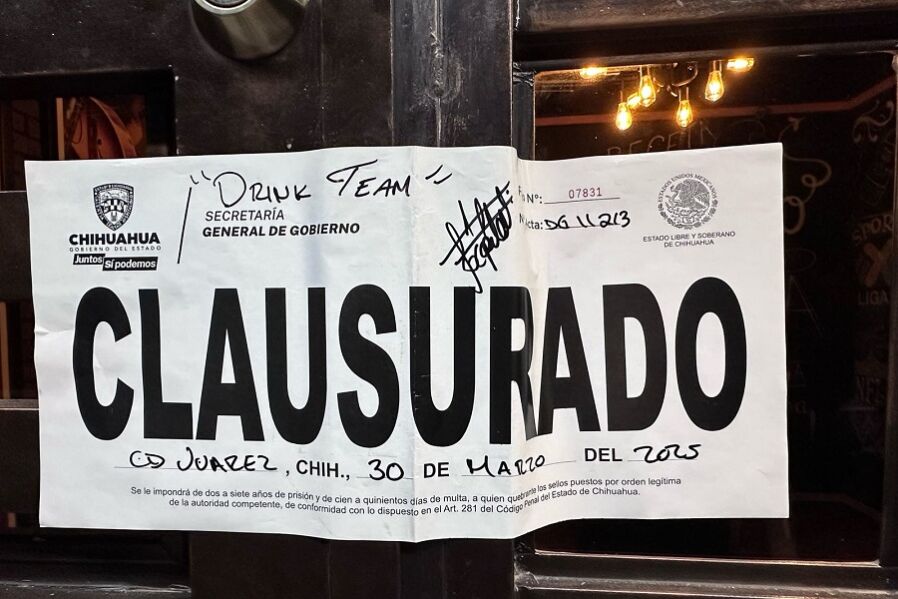 "DRINK TEAM"
CHIHUAHUA
GOBIERNO DEL ESTADO
Juntos
Sí podemos
SECRETARÍA
GENERAL DE GOBIERNO
Nº: 07831
cta: DG 11213
ESTADOS UNIDOS MEXICANOS
ESTADO LIBRE Y SOBERANO
DE CHIHUAHUA
CLAUSURADO
CD JUAREZ, CHIH., 30 DE MARZO DEL 2025
Se le impondrá de dos a siete años de prisión y de cien a quinientos días de multa, a quien quebrante los sellos puestos por orden legítima
de la autoridad competente, de conformidad con lo dispuesto en el Art. 281 del Código Penal del Estado de Chihuahua.
RECETA
LIGA